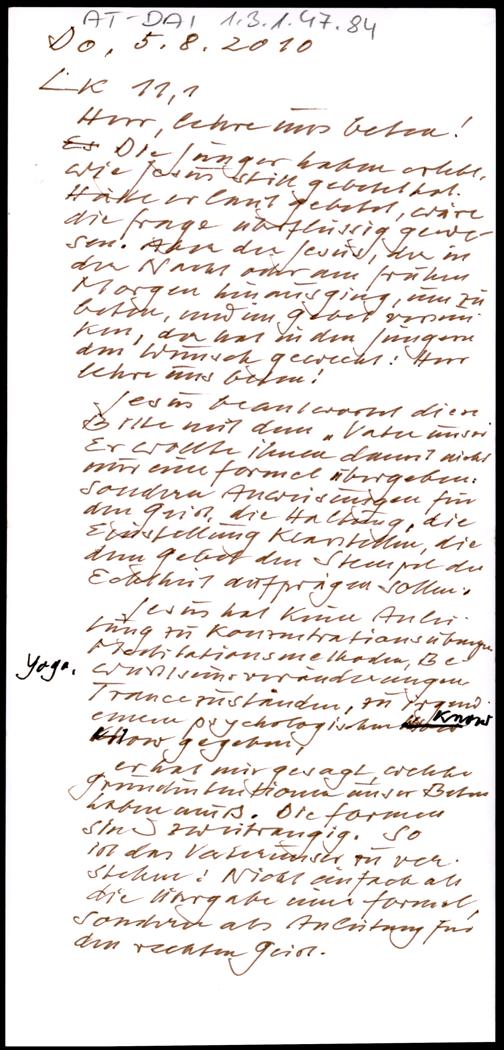 AT-DAI 1.3.1.47.84
Do, 5.8.2010
LK 11,1
Herr, lehre uns beten!
Es Die Jünger haben erlebt,
wie Jesus still gebetet hat.
Hätte er laut gebetet, wäre
die Frage überflüssig gewe-
sen. Aber der Jesus, der in
der Nacht oder am frühen
Morgen hinausging, um zu
beten, und im Gebet versin-
ken, da hat in den Jüngern
den Wunsch geweckt: Herr
lehre uns beten!
Jesus beantwortet diese
Bitte mit dem "Vater unser
Er wollte ihnen damit nicht
nur eine Formel übergeben:
sondern Anweisungen für
den Geist, die Haltung, die
Einstellung klarstellen, die
dem Gebet den Stempel der
Echtheit aufprägen sollen.
Jesus hat keine Anlei-
tung zu Konzentrationsübungen
Meditationsmethoden, Be-
Yoga, wußtseinsveränderungen
Trancezuständen, zu irgend
einem psychologischen Know
how gegeben,
er hat nur gesagt, welche
Grundintentionen unser Beten
haben muß. Die Formen
sind zweitrangig. So
ist das Vaterunser zu ver-
stehen: Nicht einfach als
die Übergabe einer Formel,
sondern als Anleitung für
den rechten Geist.